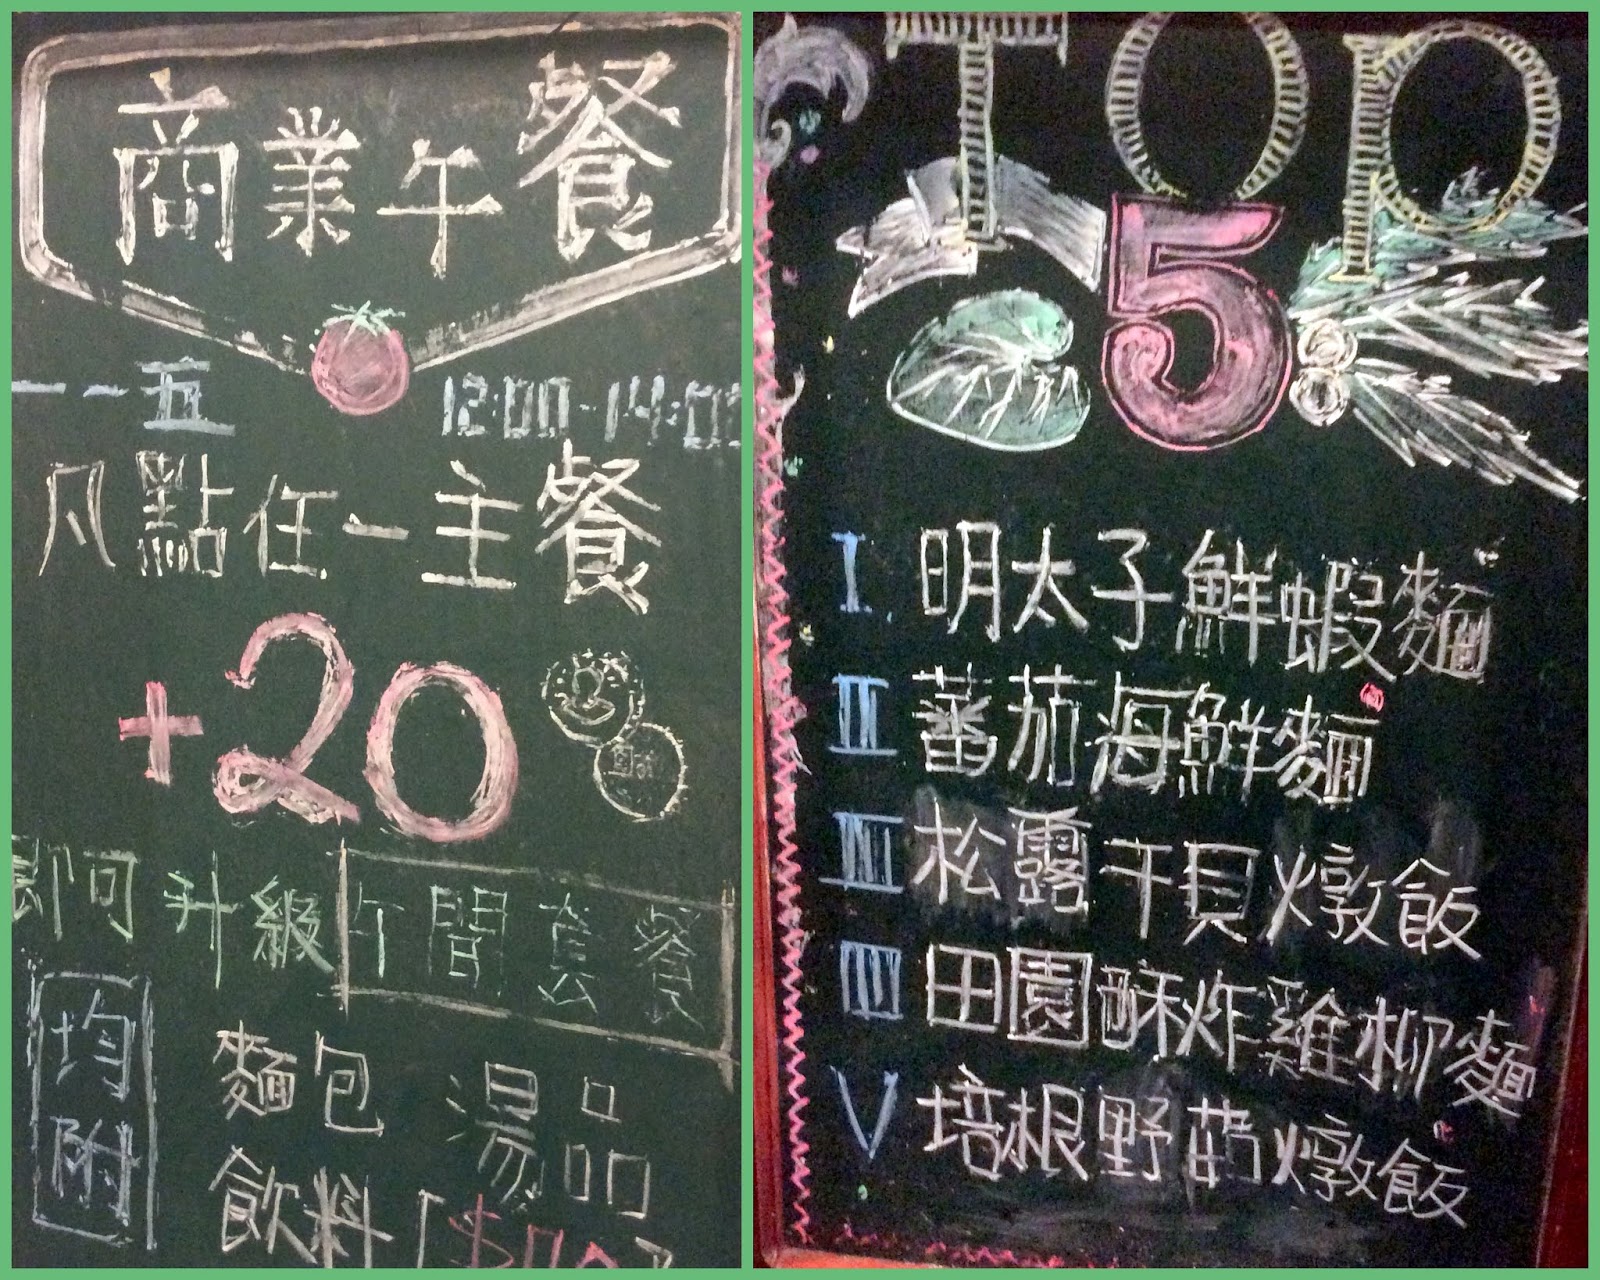 商業午餐
一~五 12:00-14:00
凡點任一主餐
+20
即可升級午間套餐
均附
麵包 湯品
飲料
TOP
5
I 明太子鮮蝦麵
II 蕃茄海鮮麵
III 松露干貝燉飯
IIII 田園酥炸雞柳麵
V 培根野菇燉飯